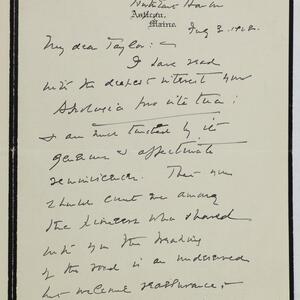 Anticon,
Maine.
July 2, 1912.
My dear Taylor:
I have read
with the deepest interest your
Apologia pro vita tua:
& am much touched by its
genuine & affectionate
reminiscences. That you
should count me among
the pioneers who shared
with you the breaking
of the road is an undeserved
but welcome reassurance: